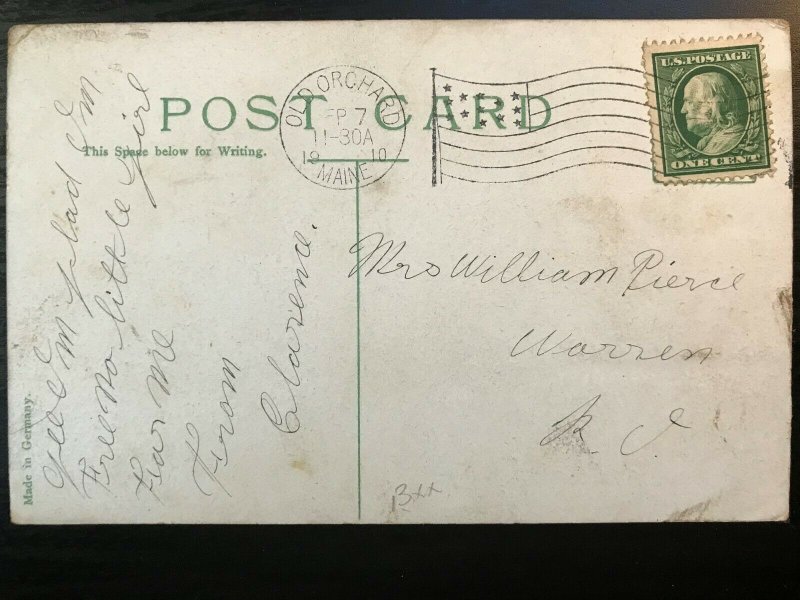 POST CARD
This Space below for Writing.
OLD ORCHARD
SEP 7
11-30A
1910
MAINE
U.S. POSTAGE
ONE CENT
Gee I'm glad I'm
Free no little Girl
For me
From
Clarence.
Mrs William Pierce
Warren
R. I.
Bxx
Made in Germany.